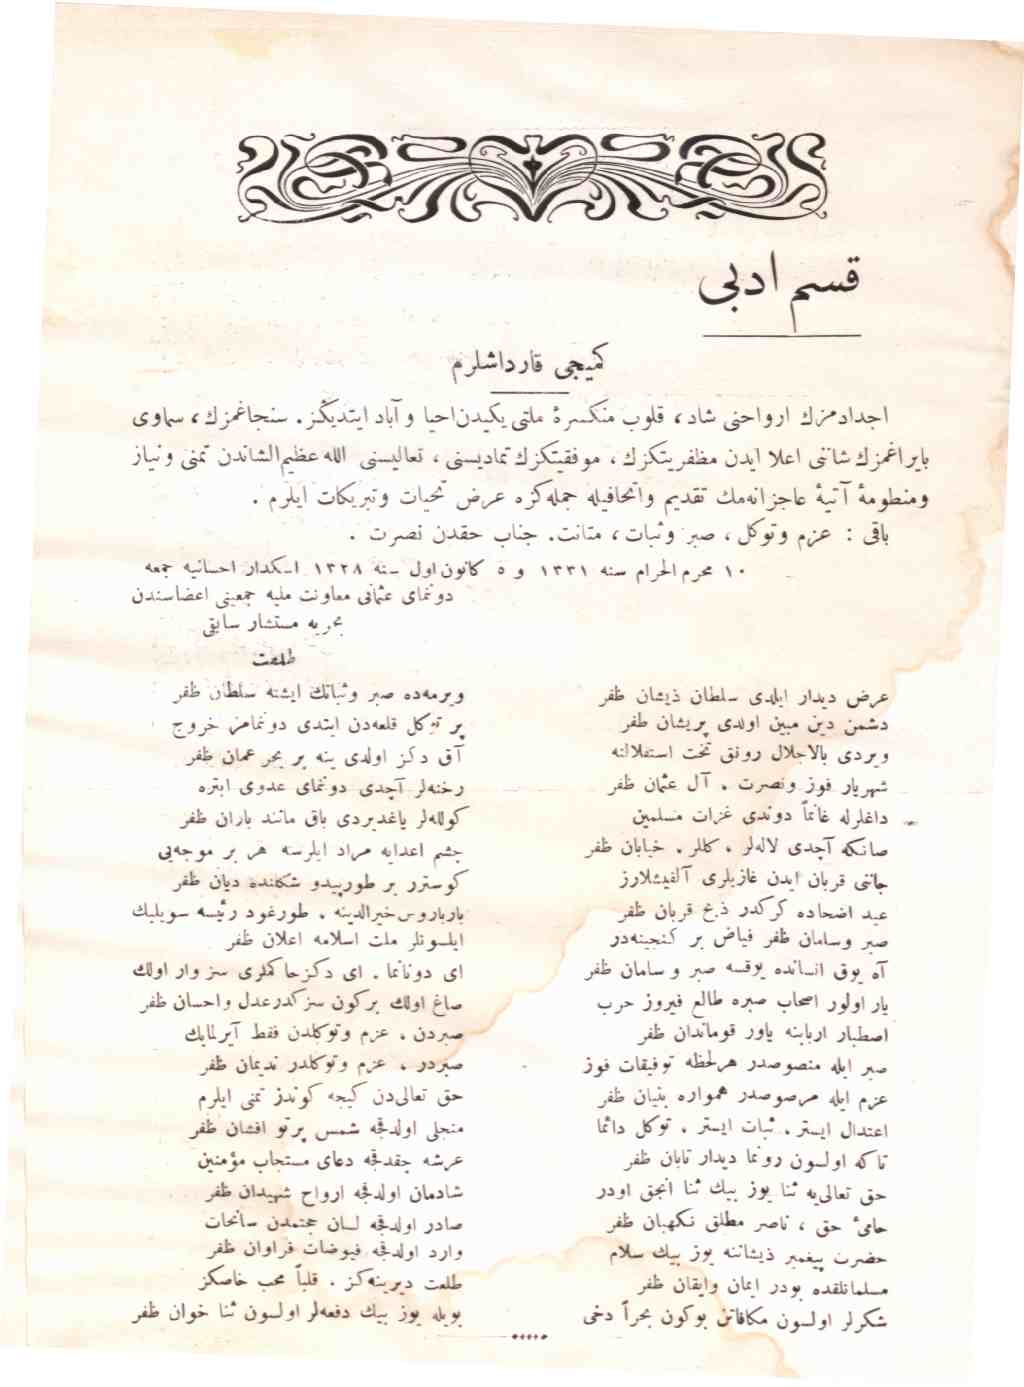 قسم ادبی
کمیجی قارداشلرم
اجدادمزك ارواحنی شاد، قلوب منکسرهٔ ملتی یکیدن احیا و آباد ایتدیکز. سنجاغمزك، سماوی
بایراغمزك شاننی اعلا ایدن مظفریتکزك، موفقیتکزك تمادیسنی، تعالیسنی الله عظیم الشاندن تمنی و نیاز
ومنظومهٔ آتیهٔ عاجزانه‌مك تقدیم واتحافیله جمله‌کزه عرض تحیات وتبریکات ایلرم .
باقی : عزم وتوکل، صبر وثبات، متانت. جناب حقدن نصرت .
١٠ محرم الحرام سنه ١٣٣١ و ٥ کانون اول سنه ١٣٢٨ اسکدار احسانیه جمعه
دونمای عثمانی معاونت ملیه جمعیتی اعضاسندن
بحریه مستشار سابقی
طلعت
عرض دیدار ایلدی سلطان ذیشان ظفر
دشمن دین مبین اولدی پریشان ظفر
ویردی بالاجلال رونق تخت استقلالنه
شهریار فوز ونصرت . آل عثمان ظفر
داغلرله غانماً دوندی غزات مسلمین
صانکه آچدی لاله‌لر ، کللر . خیابان ظفر
جاننی قربان ایدن غازیلری آلقیشلارز
عید اضحاده کرکدر ذبح قربان ظفر
صبر وسامان ظفر فیاض بر کنجینه‌در
آه یوق انسانده یوقسه صبر و سامان ظفر
یار اولور اصحاب صبره طالع فیروز حرب
اصطبار اربابنه یاور قوماندان ظفر
صبر ایله منصوصدر هرلحظه توفیقات فوز
عزم ایله مرصوصدر همواره بنیان ظفر
اعتدال ایستر . ثبات ایستر . توکل دائما
تاکه اولسون رونما دیدار تابان ظفر
حق تعالی‌یه ثنا یوز بیك ثنا انجق اودر
حامیٔ حق ، ناصر مطلق نکهبان ظفر
حضرت پیغمبر ذیشاننه یوز بیك سلام
مسلمانلقده بودر ایمان وایقان ظفر
شکرلر اولسون مکافاتن بوکون بحراً دخی
ویرمه‌ده صبر وثباتك ایشته سلطان ظفر
پر توکل قلعه‌دن ایتدی دونمامز خروج
آق دکز اولدی ینه بر بحر عمان ظفر
رخنه‌لر آچدی دونمای عدوی ابتره
کولله‌لر یاغدیردی باق مانند باران ظفر
چشم اعدایه مراد ایلرسه هر بر موجه‌یی
کوسترر بر طورپیدو شکلنده دیان ظفر
بارباروس خیرالدینه . طورغود رئیسه سویلیك
ایلسونلر ملت اسلامه اعلان ظفر
ای دونانما . ای دکز حاکملری سز وار اولك
صاغ اولك برکون سزکدر عدل واحسان ظفر
صبردن . عزم وتوکلدن فقط آیرلمایك
صبردر ، عزم وتوکلدر ندیمان ظفر
حق تعالی‌دن کیجه کوندز تمنی ایلرم
منجلی اولدقجه شمس پرتو افشان ظفر
عرشه چقدقجه دعای مستجاب مؤمنین
شادمان اولدقجه ارواح شهیدان ظفر
صادر اولدقجه لسان حجتمدن سانحات
وارد اولدقجه فیوضات فراوان ظفر
طلعت دیرینه‌کز . قلباً محب خاصکز
بویله یوز بیك دفعه‌لر اولسون ثنا خوان ظفر